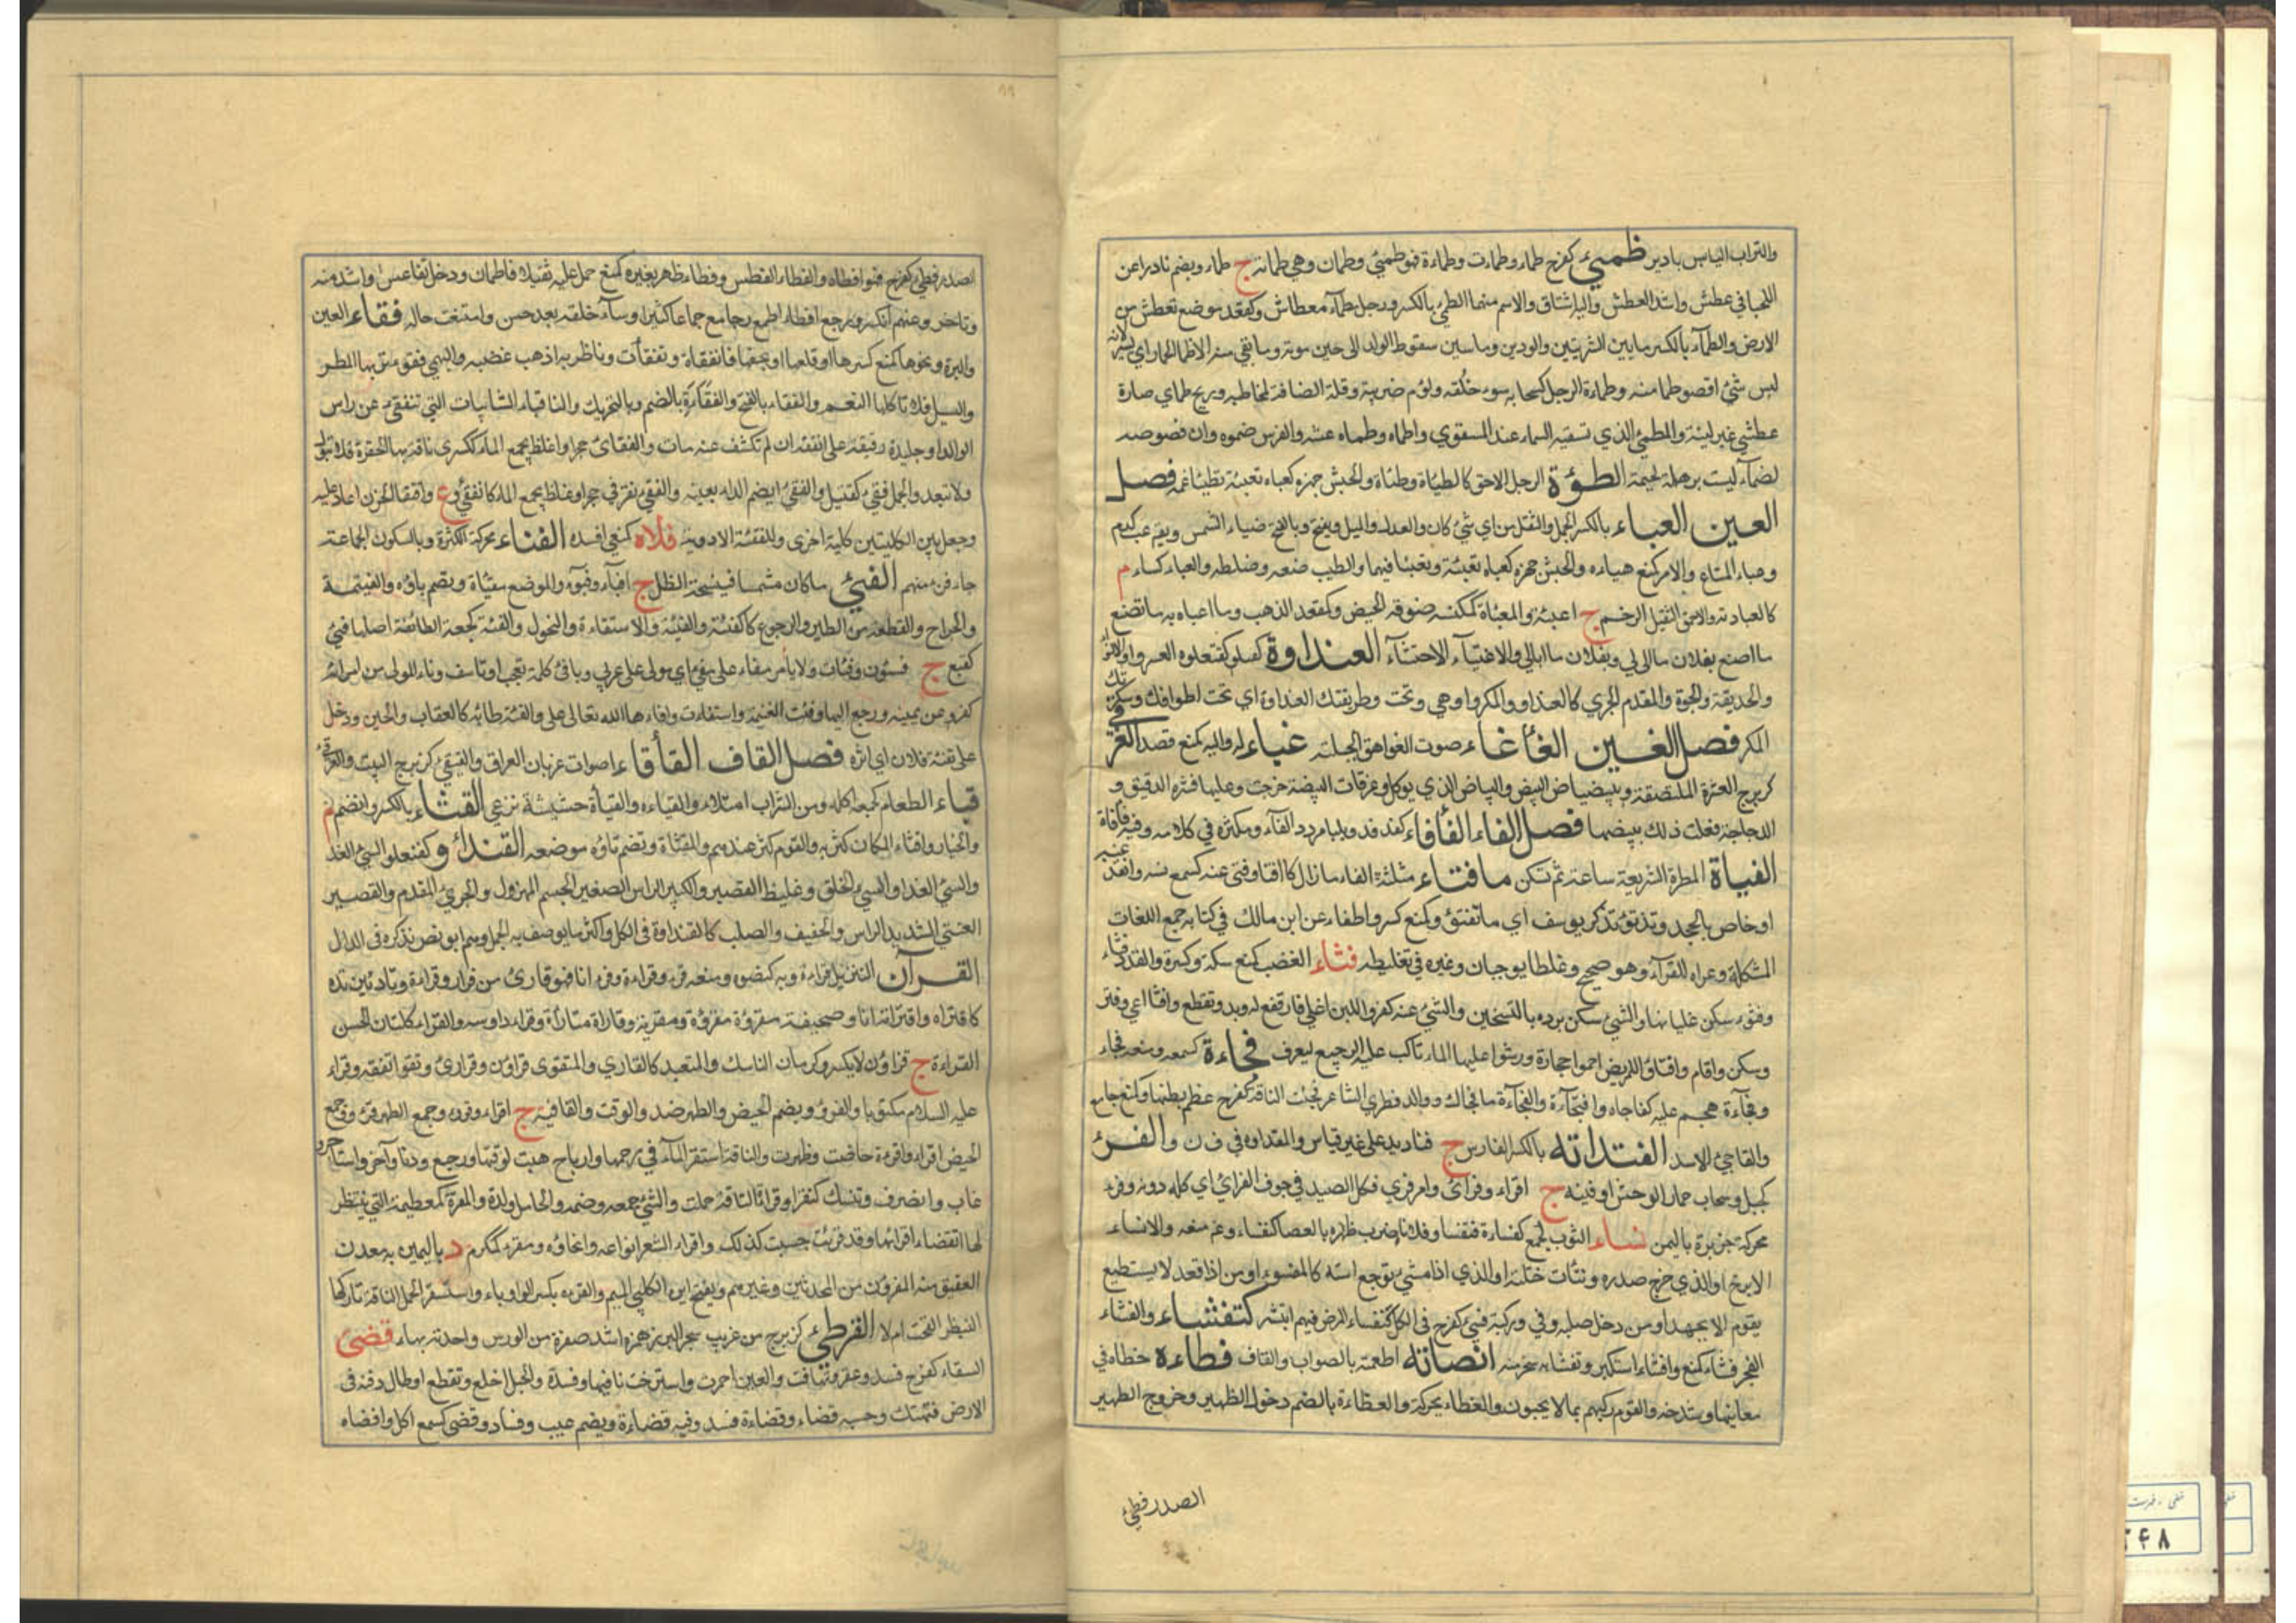 والتراب اليابس بادير ظمئ كفرح ظماء وظمات وظماءة فهو ظمئ وظمان وهي ظمانة ج ظماء ويضم نادرا عن
اللحياني عطش واشد العطش واليه اشتاق والاسم منهما الظمئ بالكسر ورجل ظماء معطاش وكمقعد موضع تعطش من
الارض والظماء بالكسر ما بين الشربتين والوردين وما بين سقوط الولد الى حين موته وما بقي منه الاظما الحمار اي يسير لانه
ليس شئ اقصر ظما منه وظماءة الرجل كسحابه سوء خلقه ولؤم ضريبة وقلة انصافه لمخاطبه وريح ظماي حارة
عطشى غير لينة والمظمئ الذي تسقيه السماء ضد المسقوي واظماه وظماه عطشه والفرس ضمره وان فصوصه
لضماء ليست برهلة لحيمة الطؤة الرجل الاحمق كالظياة وظياة والحبش جهزه كعباه تعبئة تظيئا غمه فصل
العين العباء بالكسر الحمل والثقل من اي شئ كان والعدل والميل ويفتح وبالفتح ضياء الشمس ويقم عب كدم
وعباء المتاع والامر كمنع هياءه والحبش جهزه كعباه تعبئة وتعبئا فيهما والطيب صنعه وخلطه والعباء كساء م
كالعباءة والاحمق الثقيل الوخم ج اعبئة والمعباة كمكنسة خرقة الحيض وكمقعد المذهب وما اعباء به ما تصنع
ما اصنع بفلان ما لي وبفلان ما ابالي والاعتباء الاحتشاء العنداوة كفعلوة العسر والالتواء
والخديقة والجفوة والمقدم الجري كالعنداو والمكر واو هي وتحت وطريقتك العنداوة اي تحت اطراقك وسكوتك
المكر فصل الغين الغأغاء صوت الغواهق الجبلية غباء له واليه كمنع قصد الغرقئ
كزبرج القشرة الملتصقة ببياض البيض والبياض الذي يوكل وغرقات البيضة خرجت وعليها قشره الدقيق و
الدجاجة فعلت ذلك ببيضها فصل الفاء الفأفاء كفدفد وبلبال مردد الفاء ومكثره في كلامه وفيه فأفأة
الفبأة المطرة السريعة ساعة ثم تسكن ما فتاء مثلثة الفاء ما زال كما افتا وفتئ عنه كسمع نسيه وانقدع عنه
او خاص بالجحد وتذتؤ تذكر يوسف اي ما تفتؤ وكمنع كسر واطفاء عن ابن مالك في كتابه جمع اللغات
المشكلة وعزاه للفراء وهو صحيح وغلط ابو حيان وغيره في تغليطه فثاء الغضب كمنع سكنه وكسره والقدر فثاء
وفثؤء سكن غليانها والشئ سكن برده بالتسخين والشئ عنه كفه واللبن اغلي فارتفع له زبد وتقطع وافثا اعي وفتر
وسكن واقام وافثاؤا للمريض احموا حجارة ورشوا عليها الماء فاكب عليه الوجع ليعرق فجاءة كسمعه ومنعه فجاء
وفجاءة هجم عليه كفاجاه وافتجاءة والفجاءة ما فجاك ووالد قطري الشاعر فجئت الناقة كفرح عظم بطنها وكمنع جامع
والفاجئ الاسد الفنداته بالكسر الفارس ج فناديد على غير قياس والفنداوة في ف ن د الفرء
كجبل وسحاب حمار الوحش او فتيه ج افراء وفراء وامر فري فكل الصيد في جوف الفراي اي كله دونه وفرء
محركة جزيرة باليمن فساء الثوب كجمع كفساءة فتفسا وفلانا ضرب ظهره بالعصا كفساء وعنه منعه والافساء
الابزخ او الذي خرج صدره ونتأت خثلته او الذي اذا مشى يتوجع استه كالمفسوء او من اذا قعد لا يستطيع
يقوم الا بجهد او من دخل صلبه في وركيه فسئ كفرح في الكل كتفساء المرض فيهم انتشر كتفشاء والفشاء
الفخر فشاء كمنع وافشاء استكبر وتفشا به سخر منه انصاته اطعمته بالصواب والقاف فطاءه خطاه في
معانيها وشدخه والقوم ركبهم بما لا يحبون والفطاء محركة والفطاءة بالضم دخول الظهر وخروج الظهر
الصدر فطئ
الصدر فطئ كفرح فهو افطاء والفطاء الفطس وفطاء ظهر بعيره كمنع حمل عليه ثقيلا فاطمان ودخل تفاعس واشد منه
وتاخر وعنهم انكسر ورجع افطاء اطعم وجامع جماعا كثيرا وساء خلقه بعد حسن واتسعت حاله فقاء العين
والبثرة ونحوها كمنع كسرها او قلعها او بخقها فانفقأت وتفقأت وناظريه اذهب غضبه والبهمى فقوء تتربها المطر
والسيل فلا تاكلها النعم والفقاء بالفتح والفقأة بالضم وبالتحريك والناقياء السابياء التي تنفقئ عن راس
الولد او جليدة رقيقة على انفه ان لم تكشف عنه مات والفقائ حجر او غلظ يجمع الماء كسكرى ناقة بها الحقوة فلا تبول
ولا تبعر والجمل فقئ كقتيل والفقئ ايضم الداء بعينه والفقئ نقر في حجر او غلظ يجمع الماء كالفقئ و ع وافقا الخرز اعاد عليه
وجعل بين الكليتين كلية اخرى والمفقئة الاودية فلاه كمنعه افسده الفناء محركة الكثرة وبالسكون الجماعة
جاء فن منهم الفئ ما كان شمسا فينسخه الظل ج افياء وفيوء والموضع مفيأة وتضم ياؤه والغنيمة
والخراج والقطعة من الطير والرجوع كالفئة والفيئة والاستفاءة والتحول والفئة كجمعة الطائفة اصلها فئ
كفيع ج فئون وفئات ولا يأمر مفاء على مفئ اي مولى على عربي ويا فئ كلمة تعجب او تاسف وفاء المولى من امراته
كفر عن يمينه ورجع اليها وفئت الغنيمة واستفات وافاءها الله تعالى علي والفئة طائر كالعقاب والحين ودخل
على تفئة فلان اي اثره فصل القاف القأقاء اصوات غربان العراق والقيقئ كزبرج البيت والغرقئ
قباء الطعام كجمعه اكله ومن الشراب امتلاء والقباءه والقبأة حشيشة ترعى القثاء بالكسر والضم م
والخيار واقثاء المكان كثر به والقوم كثر عندهم والمقثاة وتضم ثاؤه موضعه القندأو كفنعلو السئ الغذ
والسئ الغذاء والسئ الخلق وغليظ القصير والكبير الراس الصغير الجسم المهزول والجرئ المقدم والقصير
العنق الشديد الراس والخفيف والصلب كالقنداوة في الكل واكثر ما يوصف به الجمل وهم ابو نصر فذكره في الدال
القرآن التنزيل قراءة وبه كنصره ومنعه قرء وقراءة وقرءانا فهو قارئ من قراء وقراءة وقارئين تلاه
كاقتراه واقتراته انا وصحيفة مقروءة مقروة ومقرية وقاراة مقارأة وقراء دارسه والقراء ككتان الحسن
القراءة ج قراؤن لا يكسر وكرمان الناسك والمتعبد كالقاري والمتقري قراؤن وقراري وتقرا تفقه وقراء
عليه السلام مكتوبا والقرؤ ويضم الحيض والطهر ضد والوقت والقافية ج اقراء وقروء وجمع الطهر قروء وجمع
الحيض اقراء واقرءت حاضت وطهرت والناقة استقر الماء في رحمها والرياح هبت لوقتها ورجع ودنا وآخر واستاخر و
غاب وانصرف وتنسك كتقرا وقرأت الناقة حملت والشئ جمعه وضمه والحامل ولدت والمقرأة كمعظمة التي ينتظر
لها انقضاء اقرائها وقد قرئت حبست كذلك واقراء الشعر انواعه وانحاؤه ومقرء كمكرم د باليمن به معدن
العقيق منه المقرؤن من المحدثين وغيرهم ويفتح ابن الكلبي الميم والقرءه بكسر الوباء واستقر الجمل الناقة تاركها
لينظر القحت ام لا القرطئ كزبرج من غريب شجر البر زهره اشد صفرة من الورس واحدته بهاء قضئ
السقاء كفرح فسد وعفن وتهافت والعين احمرت واسترخت مآقيها وفسدت والحبل اخلق وتقطع او طال دفنه في
الارض فتهتك وحسبه قضاء وقضاءة فسد وفيه قضاءة ويضم عيب وفساد وقضئ كسمع اكل واقضاه